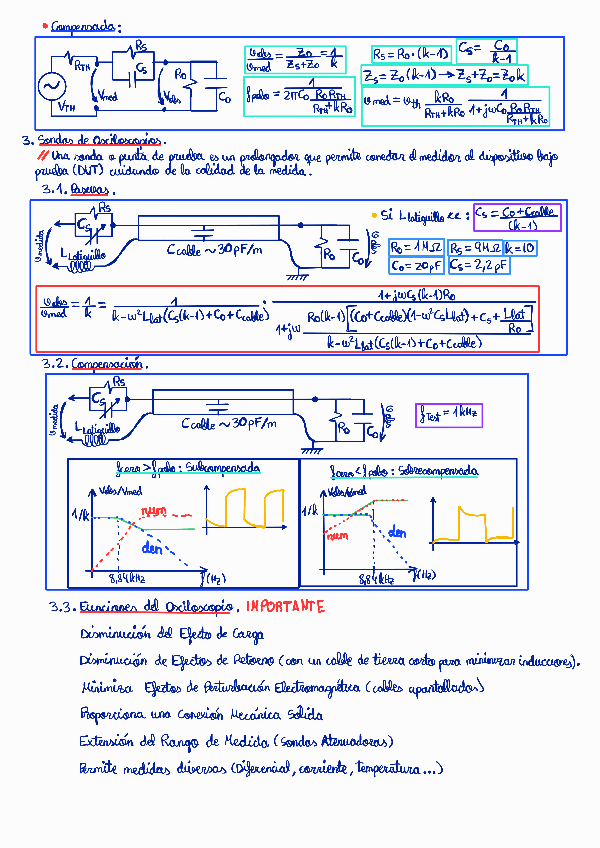 • Compensada:
R_TH R_S C_S R_O C_O V_TH V_med V_obs
V_obs/V_med = Z_O/(Z_S+Z_O) = 1/k
f_polo = 1/(2πC_O (R_O R_TH)/(R_TH+kR_O))
R_S = R_O·(k-1) C_S = C_O/(k-1)
Z_S = Z_O(k-1) → Z_S+Z_O = Z_O k
V_med = V_th kR_O/(R_TH+kR_O) 1/(1+jωC_O (R_O R_TH)/(R_TH+kR_O))
3. Sondas de Osciloscopios.
// Una sonda o punta de prueba es un prolongador que permite conectar el medidor al dispositivo bajo
prueba (DUT) cuidando de la calidad de la medida.
3.1. Pasivas.
R_S C_S L_latiguillo V_medida C_cable ~ 30pF/m R_O C_O V_obs
• Si L_latiguillo <<: C_S = (C_O+C_cable)/(k-1)
R_O = 1MΩ R_S = 9MΩ k=10
C_O = 20pF C_S = 2,2pF
V_obs/V_med = 1/k = 1/(k-ω²L_lat(C_S(k-1)+C_O+C_cable)) · (1+jωC_S(k-1)R_O)/(1+jω (R_O(k-1)[(C_O+C_cable)(1-ω²C_S L_lat)+C_S+L_lat/R_O])/(k-ω²L_lat(C_S(k-1)+C_O+C_cable)))
3.2. Compensación.
R_S C_S L_latiguillo V_medida C_cable ~ 30pF/m R_O C_O V_obs
f_Test = 1kHz
f_cero > f_polo: Subcompensada
V_obs/V_med
1/k
num
den
8,84kHz f(Hz)
f_cero < f_polo: Sobrecompensada
V_obs/V_med
1/k
num
den
8,84kHz f(Hz)
3.3. Funciones del Osciloscopio. IMPORTANTE
Disminución del Efecto de Carga
Disminución de Efectos de Retorno (con un cable de tierra corto para minimizar inducciones).
Minimiza Efectos de Perturbación Electromagnética (cables apantallados)
Proporciona una Conexión Mecánica Sólida
Extensión del Rango de Medida (Sondas Atenuadoras)
Permite medidas diversas (Diferencial, corriente, temperatura...)